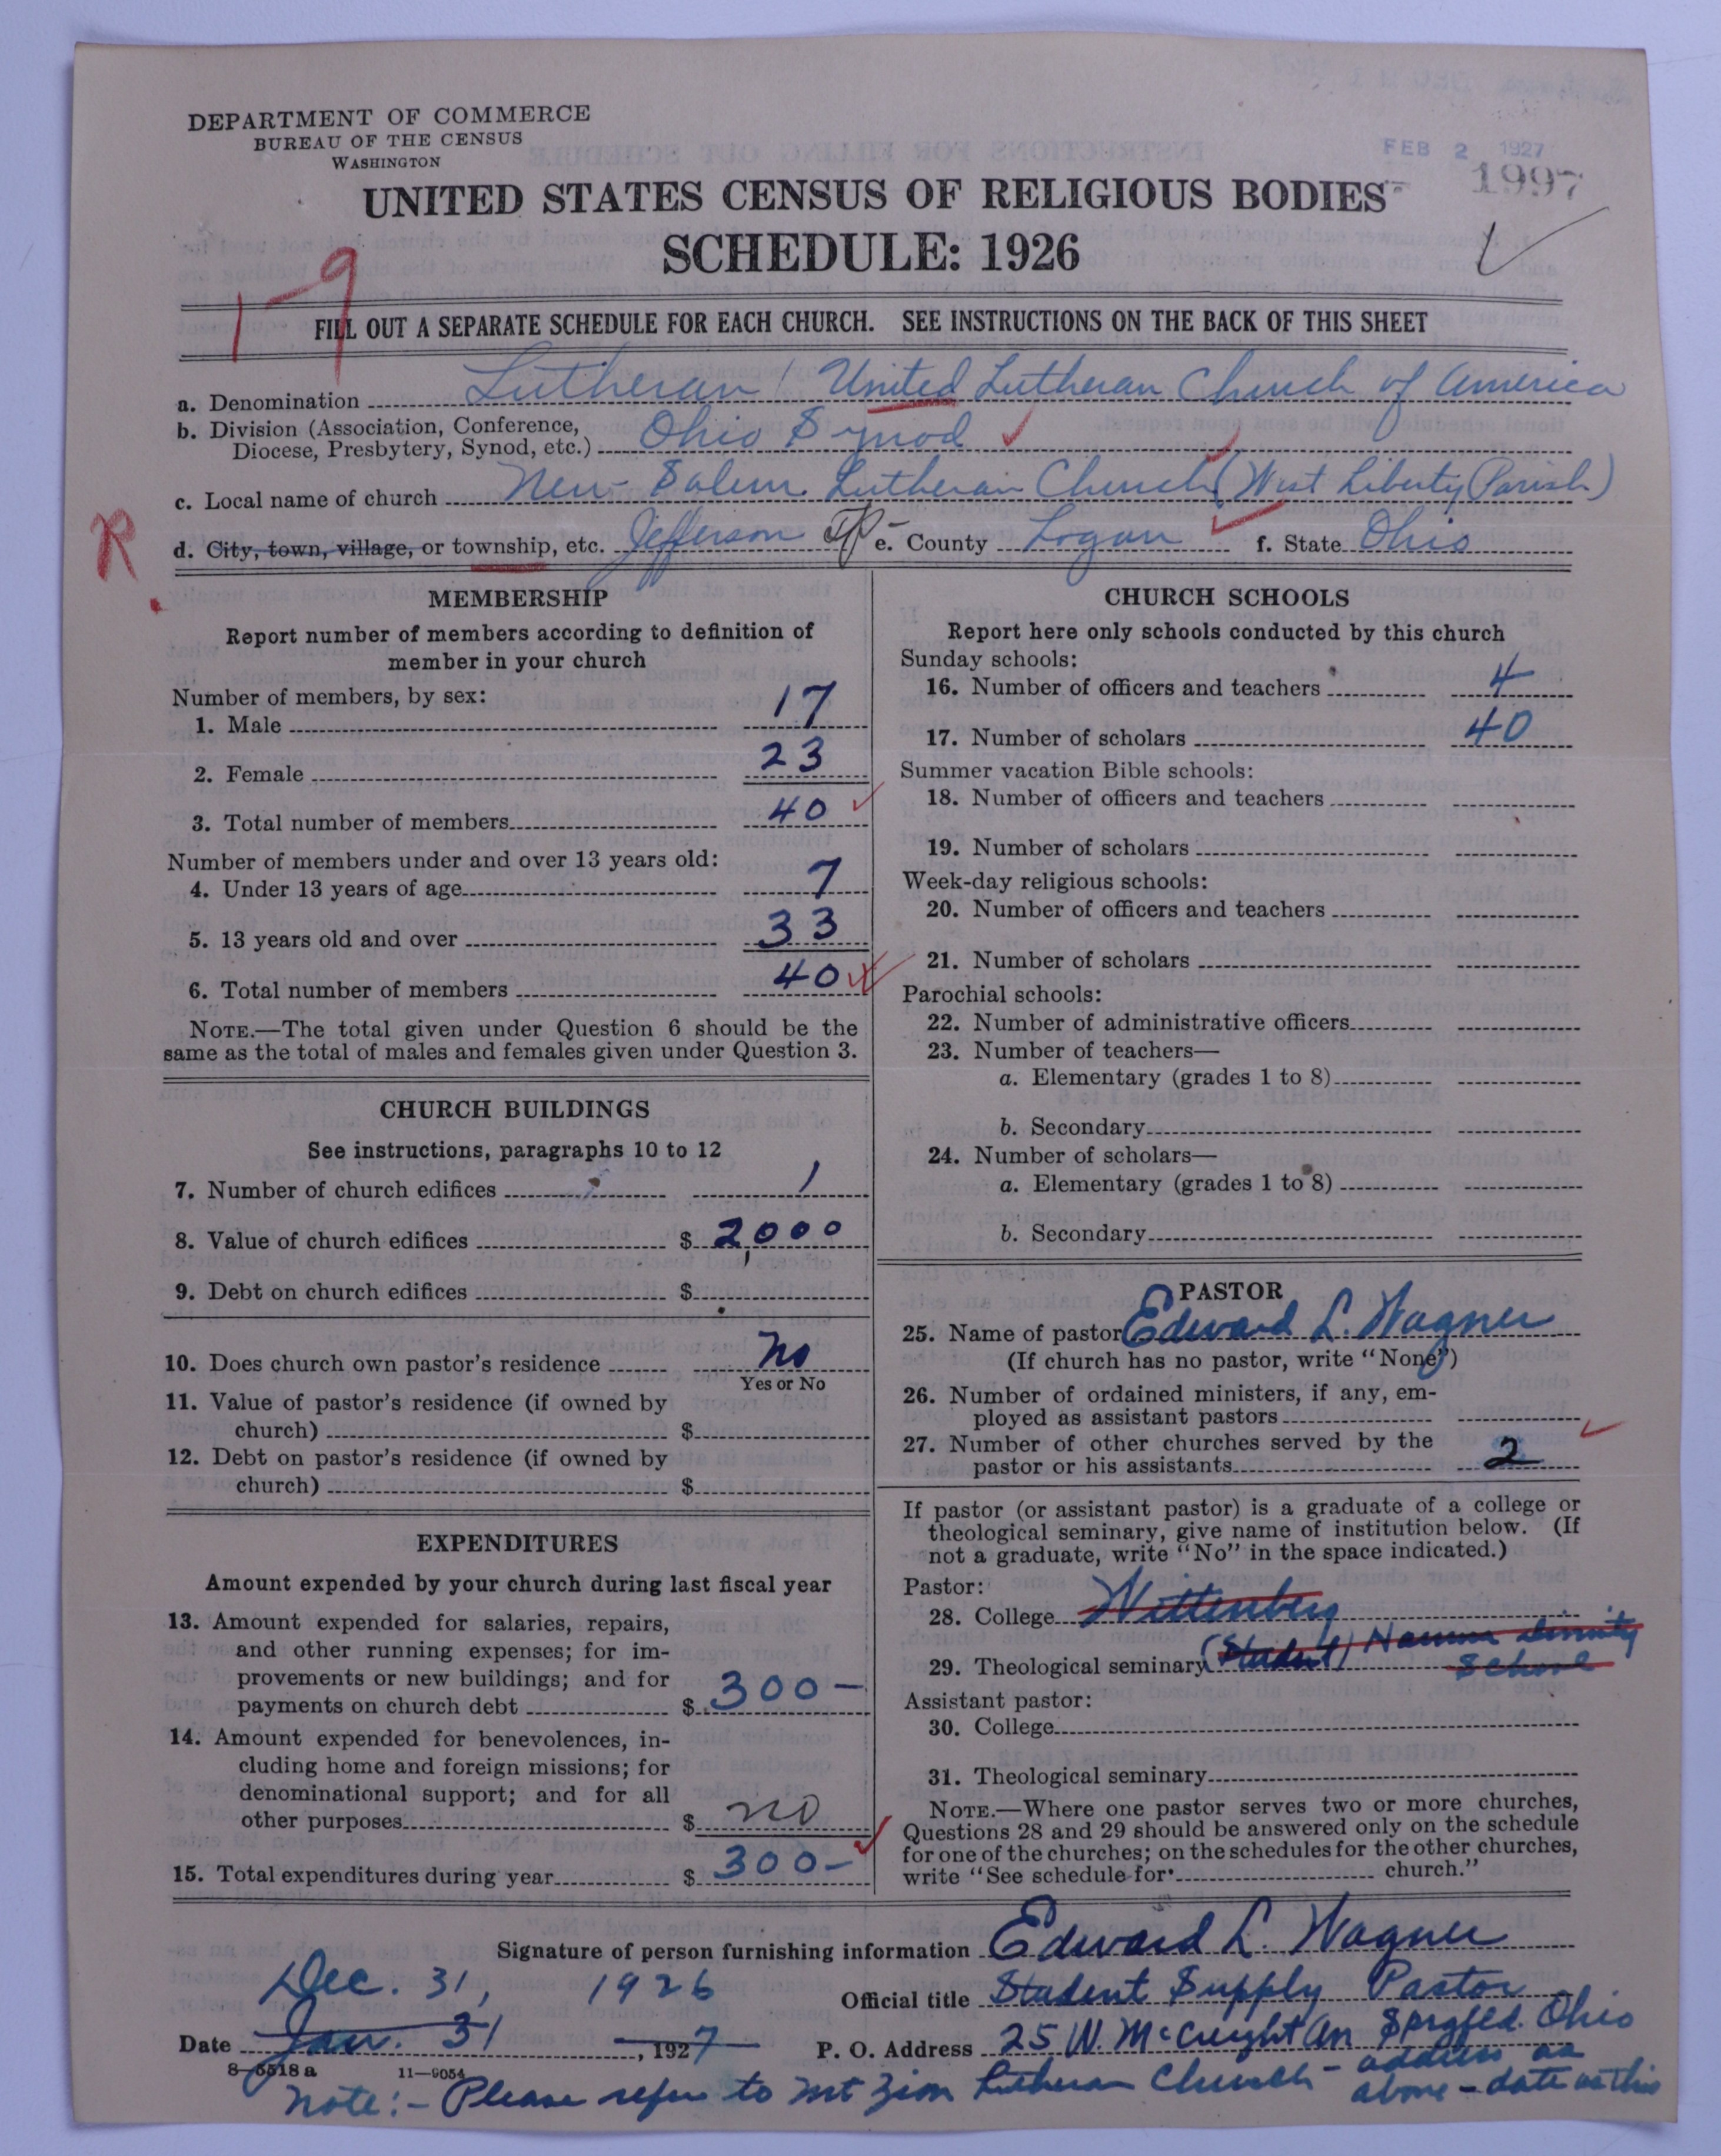 DEPARTMENT OF COMMERCE
BUREAU OF THE CENSUS
WASHINGTON
FEB 2 1927
1997
UNITED STATES CENSUS OF RELIGIOUS BODIES
SCHEDULE: 1926
1-9
FILL OUT A SEPARATE SCHEDULE FOR EACH CHURCH. SEE INSTRUCTIONS ON THE BACK OF THIS SHEET
a. Denomination Lutheran / United Lutheran Church of America
b. Division (Association, Conference,
Diocese, Presbytery, Synod, etc.) Ohio Synod
c. Local name of church New-Salem Lutheran Church (West Liberty Parish)
R
d. City, town, village, or township, etc. Jefferson Tp- e. County Logan f. State Ohio
MEMBERSHIP
Report number of members according to definition of
member in your church
Number of members, by sex:
1. Male 17
2. Female 23
3. Total number of members 40
Number of members under and over 13 years old:
4. Under 13 years of age 7
5. 13 years old and over 33
6. Total number of members 40
NOTE.—The total given under Question 6 should be the
same as the total of males and females given under Question 3.
CHURCH BUILDINGS
See instructions, paragraphs 10 to 12
7. Number of church edifices 1
8. Value of church edifices $ 2,000
9. Debt on church edifices $
10. Does church own pastor's residence No
Yes or No
11. Value of pastor's residence (if owned by
church) $
12. Debt on pastor's residence (if owned by
church) $
EXPENDITURES
Amount expended by your church during last fiscal year
13. Amount expended for salaries, repairs,
and other running expenses; for im-
provements or new buildings; and for
payments on church debt $ 300-
14. Amount expended for benevolences, in-
cluding home and foreign missions; for
denominational support; and for all
other purposes $ no
15. Total expenditures during year $ 300-
CHURCH SCHOOLS
Report here only schools conducted by this church
Sunday schools:
16. Number of officers and teachers 4
17. Number of scholars 40
Summer vacation Bible schools:
18. Number of officers and teachers
19. Number of scholars
Week-day religious schools:
20. Number of officers and teachers
21. Number of scholars
Parochial schools:
22. Number of administrative officers
23. Number of teachers—
a. Elementary (grades 1 to 8)
b. Secondary
24. Number of scholars—
a. Elementary (grades 1 to 8)
b. Secondary
PASTOR
25. Name of pastor Edward L. Wagner
(If church has no pastor, write "None")
26. Number of ordained ministers, if any, em-
ployed as assistant pastors
27. Number of other churches served by the
pastor or his assistants 2
If pastor (or assistant pastor) is a graduate of a college or
theological seminary, give name of institution below. (If
not a graduate, write "No" in the space indicated.)
Pastor:
28. College Wittenberg
29. Theological seminary (Student) Hamma Divinity
School
Assistant pastor:
30. College
31. Theological seminary
NOTE.—Where one pastor serves two or more churches,
Questions 28 and 29 should be answered only on the schedule
for one of the churches; on the schedules for the other churches,
write "See schedule for church."
Signature of person furnishing information Edward L. Wagner
Dec. 31, 1926
Official title Student Supply Pastor
Date Jan. 31, 1927 P. O. Address 25 W. McCreight Av. Sprgfld. Ohio
8-5518a 11-9054
Note:- Please refer to Mt Zion Lutheran Church - address as
above - date as this